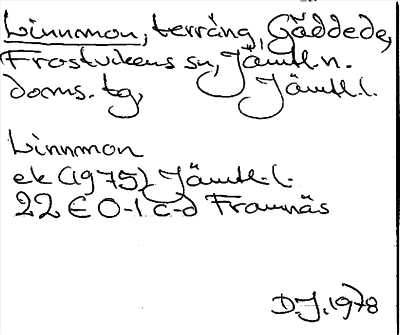 Linnmon, terräng, Gäddede,
Frostvikens sn, Jämtl.n.
doms. tg, Jämtl.l.
Linnmon
ek (1975) Jämtl.l.
22 E 0-1 c-d Framnäs
D.J. 1978